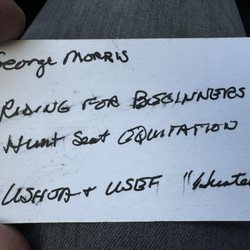 George Morris
Riding for Beginners
Hunt Seat Equitation
USHJA + USEF "Hunte